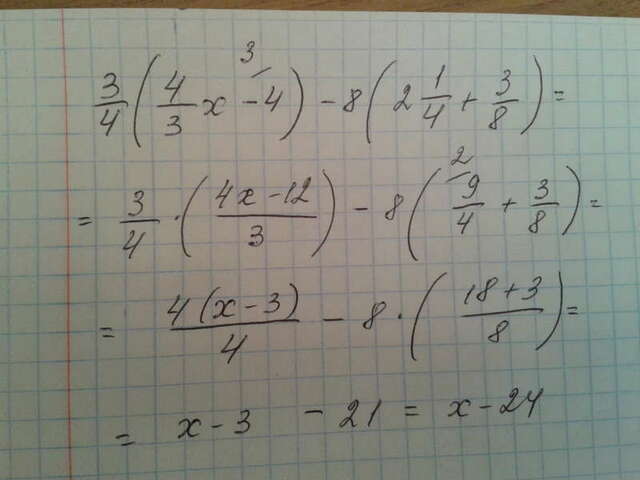 3/4 (4/3 x - 4) - 8 (2 1/4 + 3/8) =
= 3/4 · ((4x - 12)/3) - 8 (9/4 + 3/8) =
= 4(x - 3)/4 - 8 · ((18 + 3)/8) =
= x - 3 - 21 = x - 24